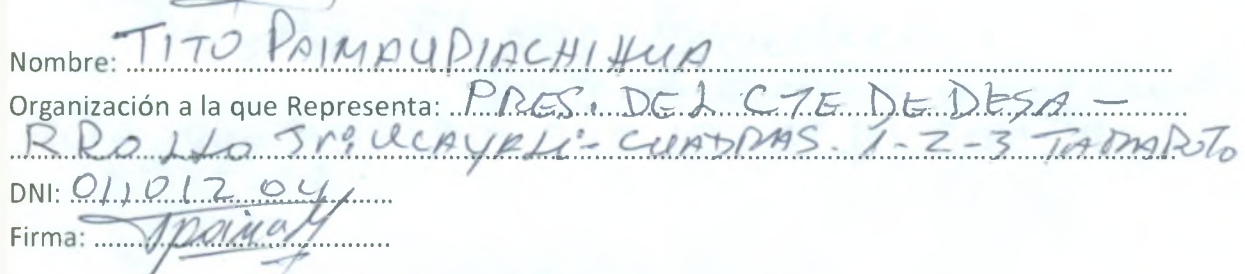 Nombre: TITO PAIMA
Organización a la que Representa: PRES. DEL CTE DE DESA -
RROLLO Jr: UCAYALI - CUADRAS. 1-2-3 TARAPOTO
DNI: 01101204
Firma: